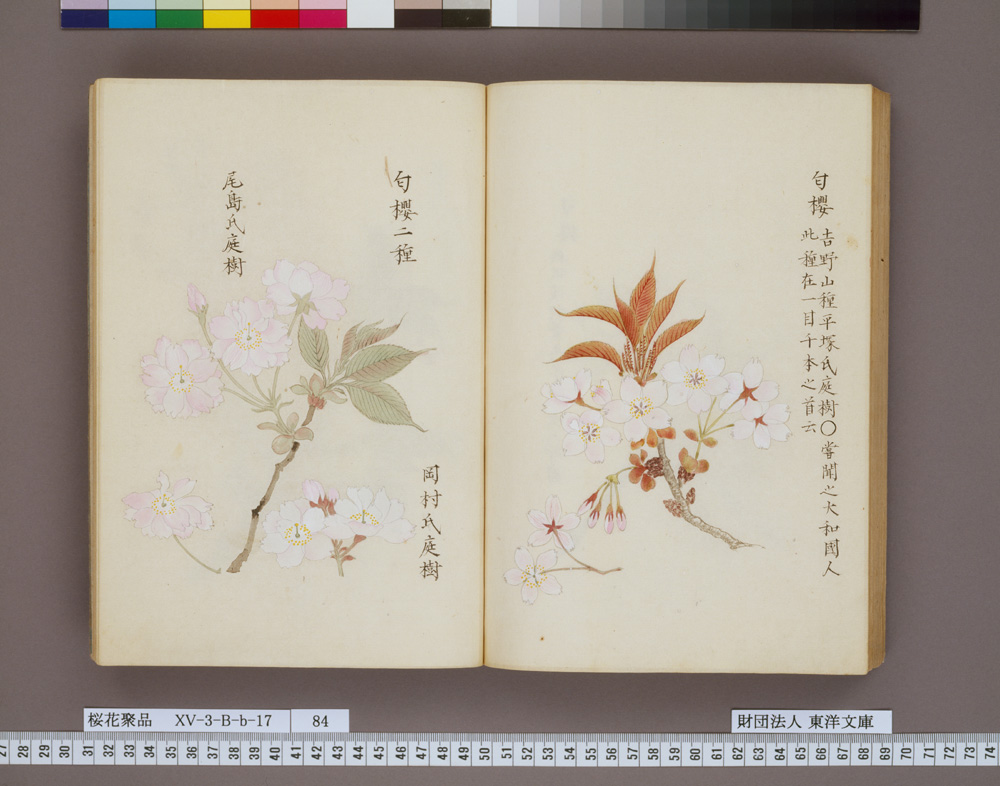 匂櫻
吉野山種平塚氏庭樹○嘗聞之大和國人
此種在一目千本之首云
匂櫻二種
尾島氏庭樹
岡村氏庭樹
桜花聚品 XV-3-B-b-17 84
財団法人 東洋文庫
27 28 29 30 31 32 33 34 35 36 37 38 39 40 41 42 43 44 45 46 47 48 49 50 51 52 53 54 55 56 57 58 59 60 61 62 63 64 65 66 67 68 69 70 71 72 73 74